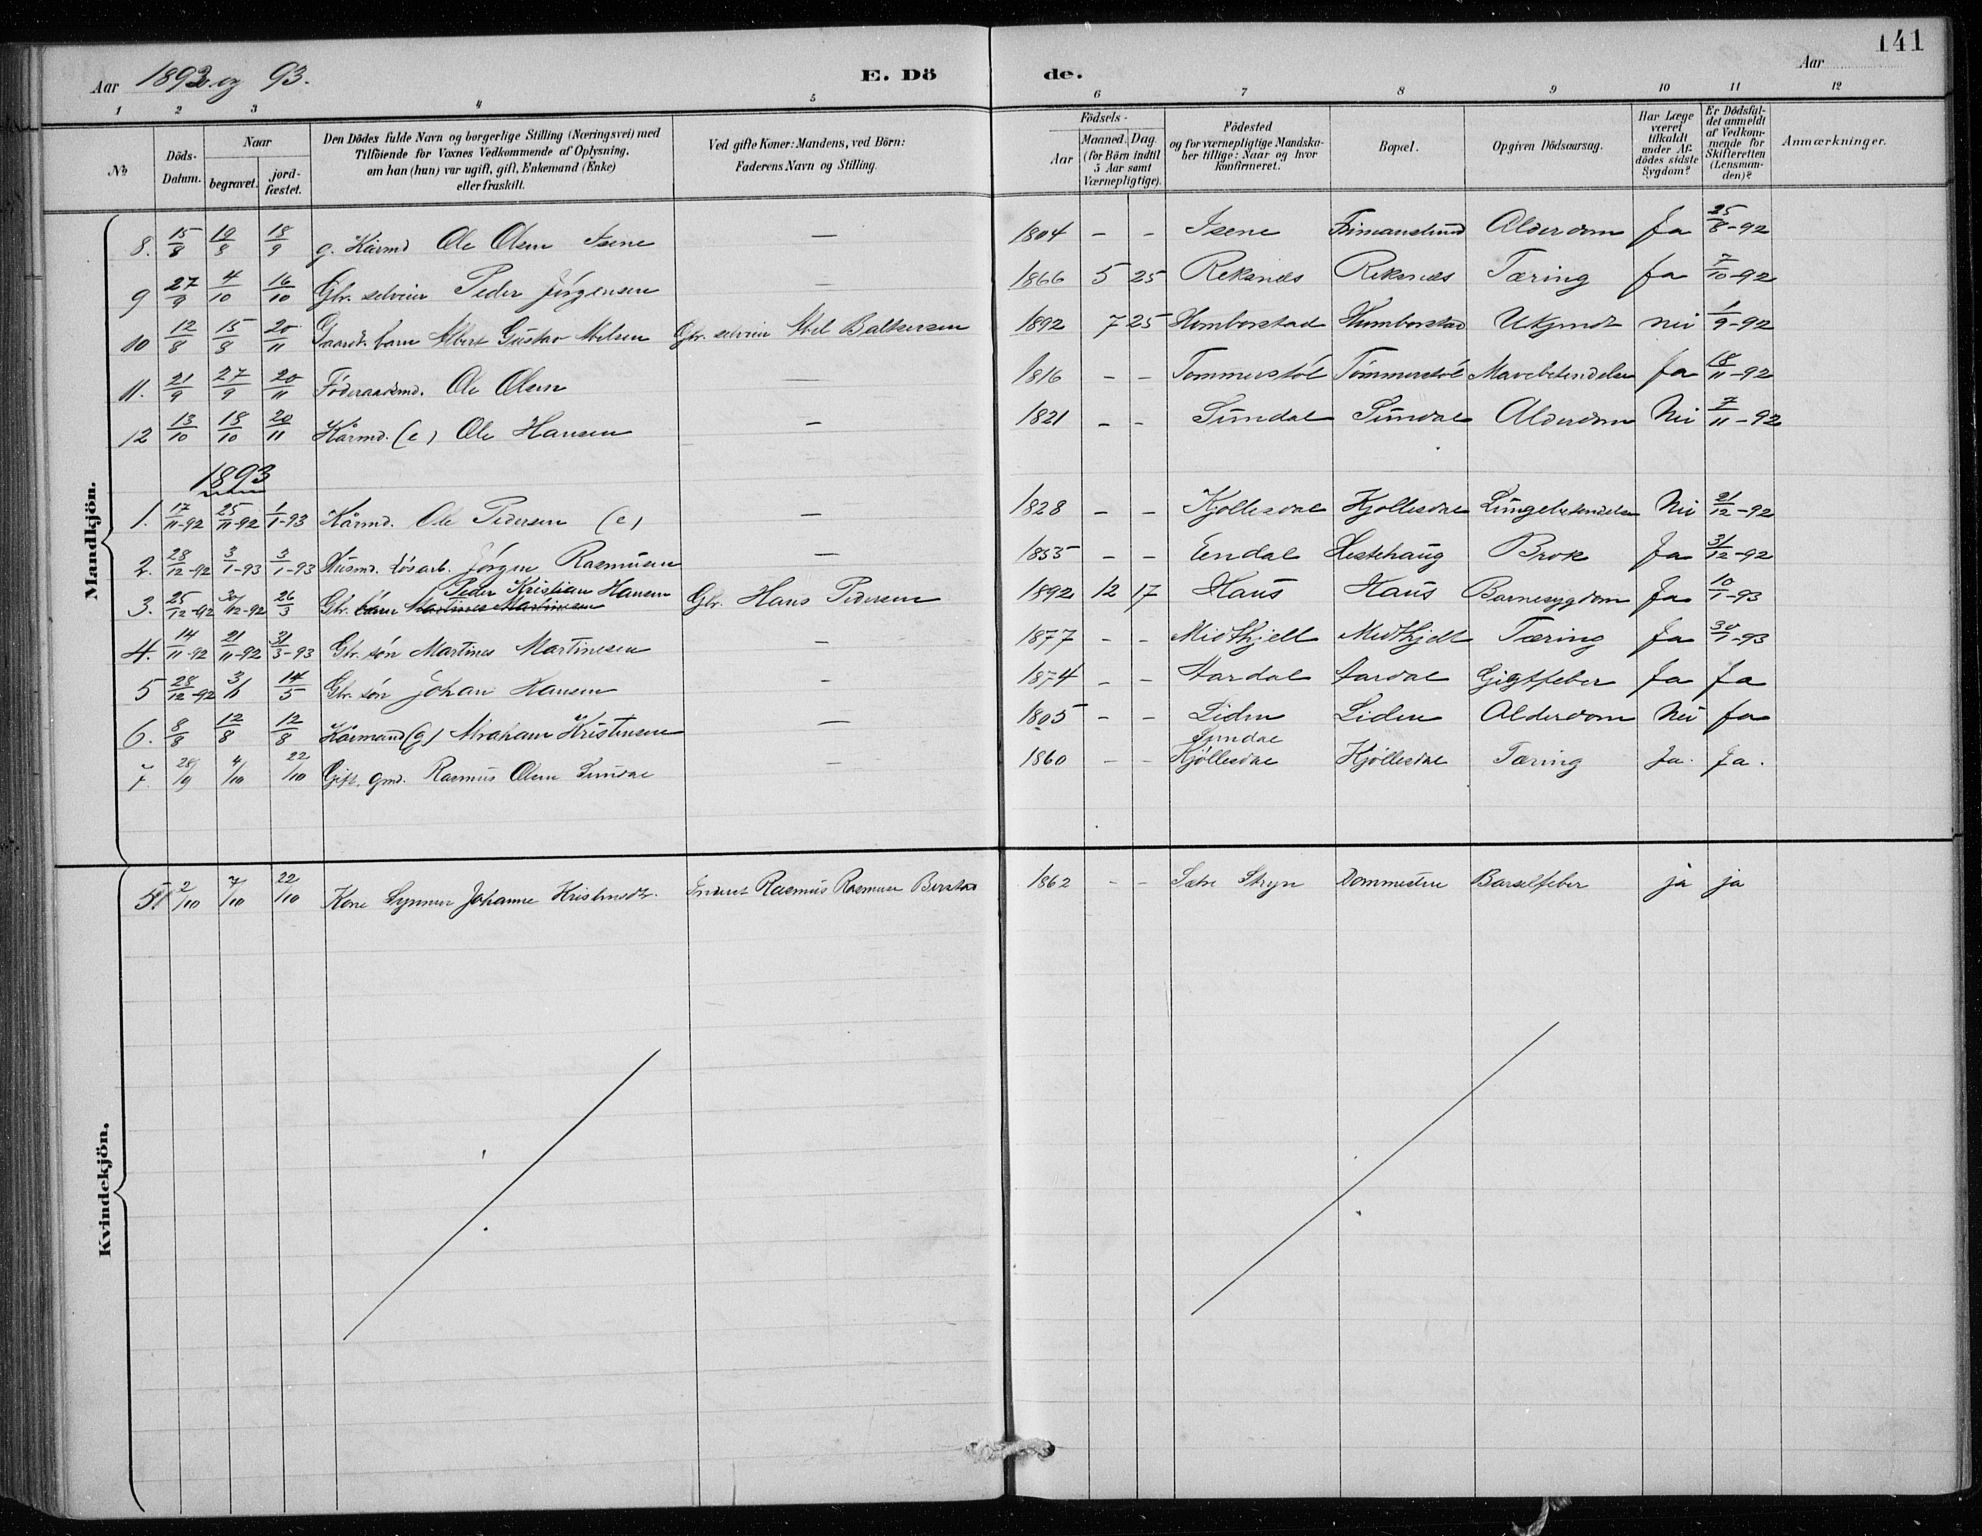 141
Aar 1892 og 93. E. Dö de. Aar
1 2 3 4 5 6 7 8 9 10 11 12
No Döds-Datum. Naar begravet. jordfæstet. Den Dödes fulde Navn og borgerlige Stilling (Næringsvei) med Tilföiende for Voxnes Vedkommende af Oplysning, om han (hun) var ugift, gift, Enkemand (Enke) eller fraskilt. Ved gifte Koner: Mandens, ved Börn: Faderens Navn og Stilling. Födsels- Aar Maaned. Dag. (for Börn indtil 5 Aar samt Værnepligtige). Födested og for værnepligtige Mandskaber tillige: Naar og hvor konfirmeret. Bopæl. Opgiven Dödsaarsag. Har Læge været tilkaldt under Afdödes sidste Sygdom? Er Dödsfaldet anmeldt af Vedkommende for Skifteretten (Lensmanden)? Anmærkninger.
Mandkjön.
8. 15/8 19/8 18/9 g. Kårmd Ole Olsen Isene — 1804 - - Isene Alderdom Ja 25/8-92
9 27/9 4/10 16/10 Gbr. selveier Peder Jörgensen — 1866 5 25 Reksnes Reksnes Tæring Ja 7/10-92
10 12/8 15/8 20/11 Gaardb. barn Albert Gustav Abelsen Gbr. selveier Abel Balkersen 1892 7 25 Humborstad Humborstad Ukjendt nei 1/9-92
11. 21/9 27/9 20/11 Föderaadsmd. Ole Olsen — 1816 - - Tommerstöl Tömmerstöl Mavebetendelse Ja 18/11-92
12 13/10 18/10 20/11 Kårmd. (e) Ole Hansen — 1821 - - Sundal Sundal Alderdom Nei 7/11-92
1893
1. 17/11-92 25/11-92 1/1-93 Kårmd. Ole Pedersen (e) — 1828 - - Kjöllesdal Kjöllesdal Lungebetendelse Nei 21/12-92
2. 28/12-92 3/1-93 3/1-93 Husmd. lösarb. Jörgen Rasmusen — 1855 - - Endal Hestehaug Brok Ja 31/12-92
3. 25/12-92 30/12-92 26/3 Gbr. barn Martines Martinesen Peder Kristian Hansen Gbr. Hans Pedersen 1892 12 17 Haus Haus Barnesygdom Ja 10/1-93
4. 14/11-92 21/11-92 31/3-93 Gbr. sön Martines Martinesen — 1877 - - Midthjell Midthjell Tæring Ja 30/1-93
5 28/12-92 3/1 14/5 Gbr. sön Johan Hansen — 1874 - - Aardal Aardal Gigtfeber Ja Ja
6. 8/8 12/8 12/8 Kårmand (g) Abraham Kristensen — 1805 - - Liden Liden Alderdom Nei Ja
7. 28/9 4/10 22/10 Gift. gmd. Rasmus Olsen Sundal — 1860 - - Sundal Kjöllesdal Kjöllesdal Tæring Ja. Ja.
Kvindekjön.
5. 2/10 7/10 22/10 Kone Synneve Johanne Kristensdtr. Rasmus Rasmusen Berstad 1862 - - Sætre Stryn Barselfeber ja ja